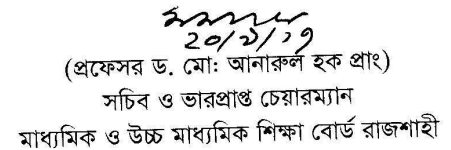 ২০/৯/১৭
(প্রফেসর ড. মো: আনারুল হক প্রাং)
সচিব ও ভারপ্রাপ্ত চেয়ারম্যান
মাধ্যমিক ও উচ্চ মাধ্যমিক শিক্ষা বোর্ড রাজশাহী